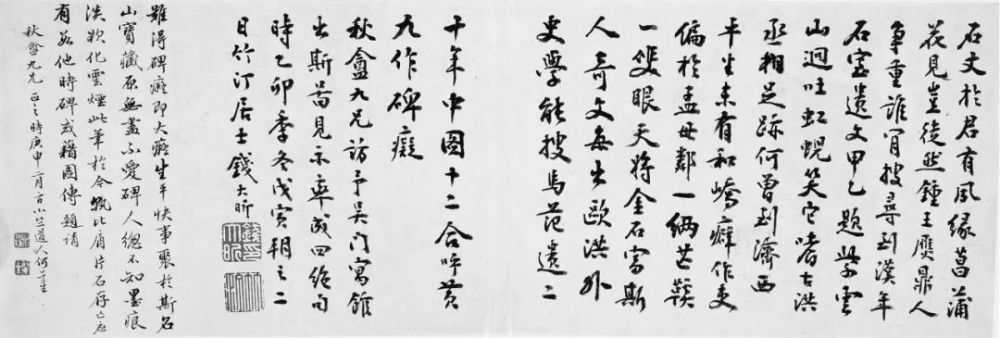 石丈於君有夙緣菖蒲
花見豈徒然鍾王贋鼎人
爭重誰肯搜尋到漢年
石室遺文甲乙題學雲
山迴吐虹蜺笑它嗜古洪
丞相足跡何曾到濟西
平生未有和嶠癖作吏
偏於孟母鄰一緉芒鞵
一雙眼天將金石富斯
人奇文每出歐洪外
史學能搜馬范遺二
十年中圖十二合呼黃
九作碑癡
秋盦九兄訪予吳門寓館
出斯圖見示率成四絕句
時乙卯季冬戊寅朔之二
日竹汀居士錢大昕
難得碑癡即大癡生平快事聚於斯名
山寶藏原無盡不愛碑人總不知墨痕
淡欲化雲煙此筆於今孰比肩片石存亡應
有數他時碑或藉圖傳題請
秋盦九兄正之時庚申二月小道人何